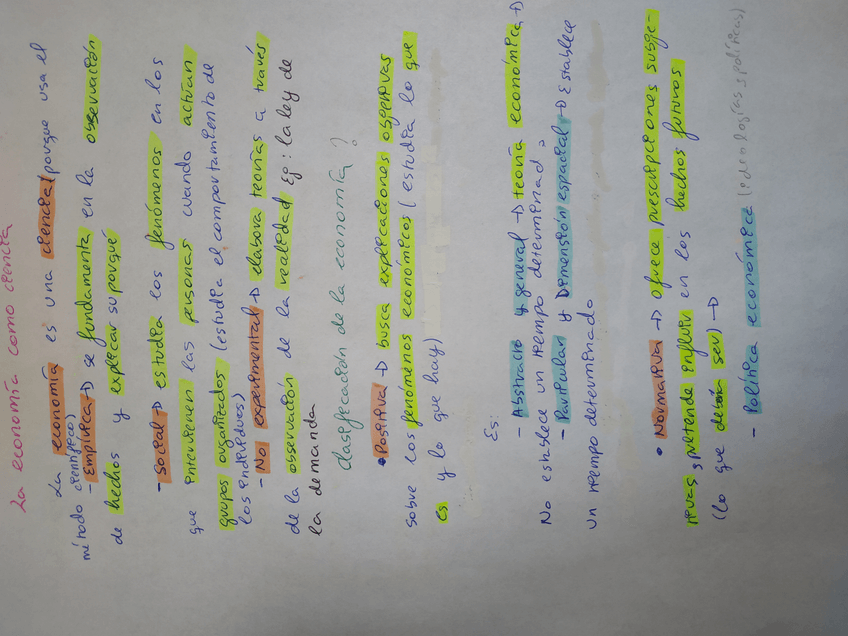 La economía como ciencia
La economía es una ciencia (porque usa el
método científico)
- Empírica → se fundamenta en la observación
de hechos y explicar su porqué
- Social → estudia los fenómenos en los
que intervienen las personas cuando actúan
grupos organizados (estudia el comportamiento de
los individuos)
- No experimental → elabora teorías a través
de la observación de la realidad Ej: la ley de
la demanda
Clasificación de la economía?
• Positiva → busca explicaciones objetivas
sobre los fenómenos económicos (estudia lo que
es y lo que hay)
Es:
- Abstracto y general → teoría económica →
No establece un tiempo determinado
- Particular y Dimensión espacial → Establece
un tiempo determinado
• Normativa → Ofrece prescripciones subje-
tivas, pretende influir en los hechos futuros
(lo que debería ser) →
- Política económica (ideologías políticas)